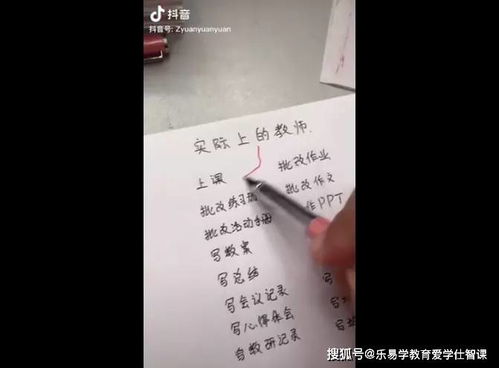 抖音
抖音号: Zyuanyuanyuan
实际上的教师.
上课
批改作业
批改练习册
批改作文
批改活动手册
作PPT
写教案
写总结
写会议记录
写
写心得体会
写
写教研记录
写
搜狐号@乐易学教育爱学仕智课